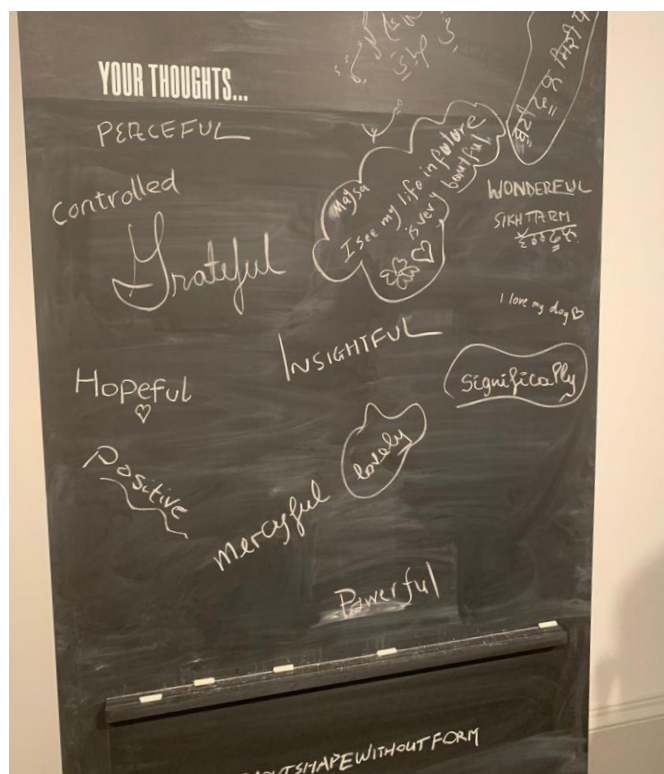 YOUR THOUGHTS...
PEACEFUL
Controlled
Grateful
Maysa
I see my life in future
is very beautiful
WONDERFUL
SIKHTARM
I love my dog
INSIGHTFUL
Hopeful
Significally
Positive
lovely
Mercyful
Powerful
SHAPE WITHOUT FORM